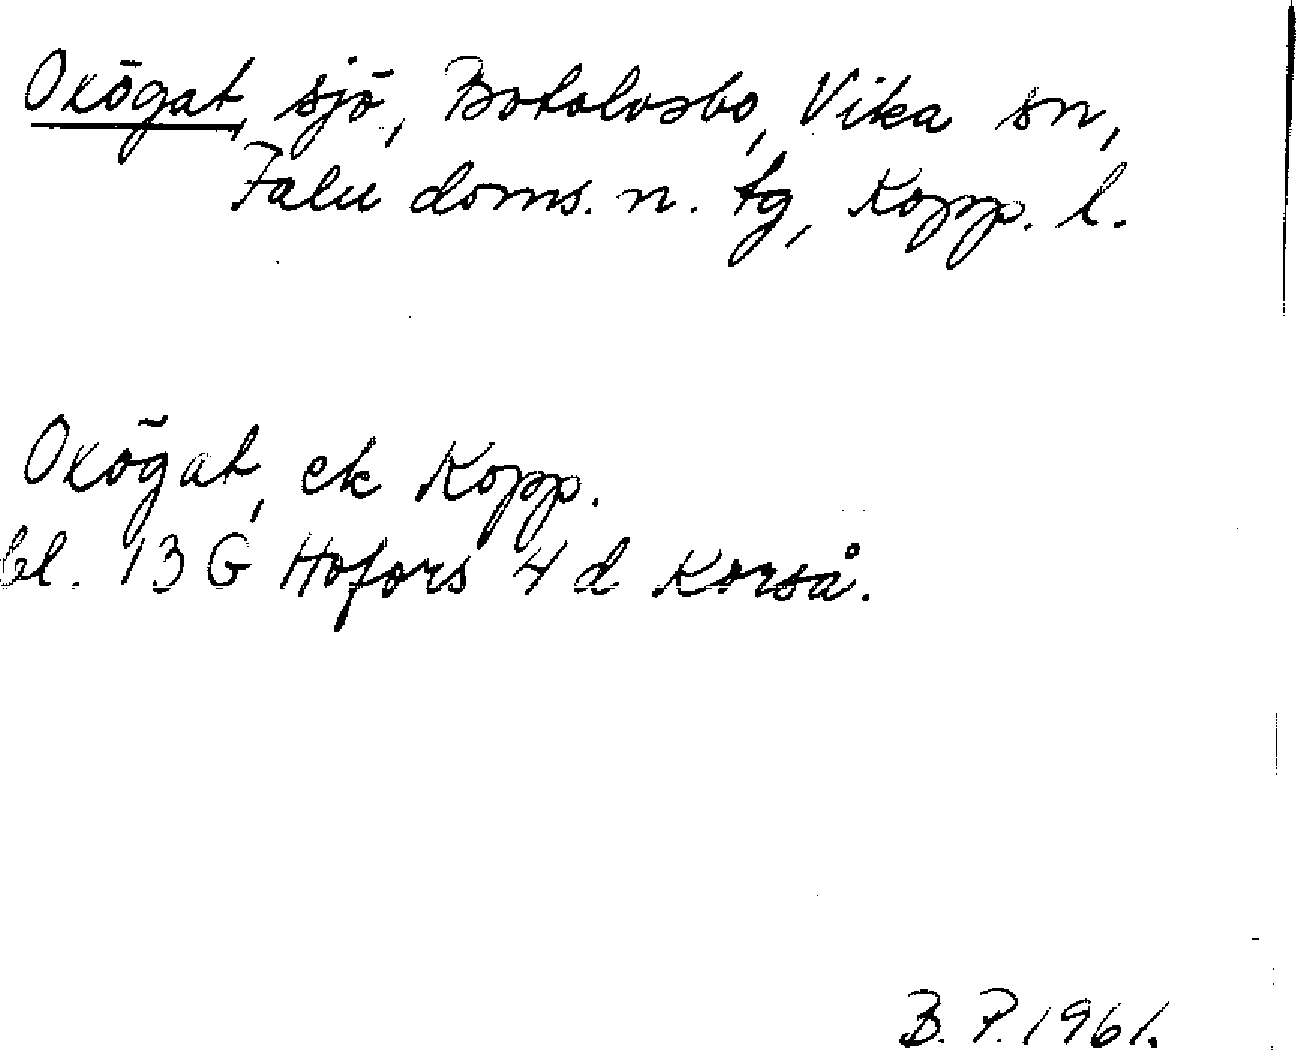 Oxögat, sjö, Botolvsbo, Vika sn,
Falu doms. n. tg, Kopp. l.
Oxögat, ek Kopp.
bl. 13 G Hofors 4 d Korså.
B. P. 1961.